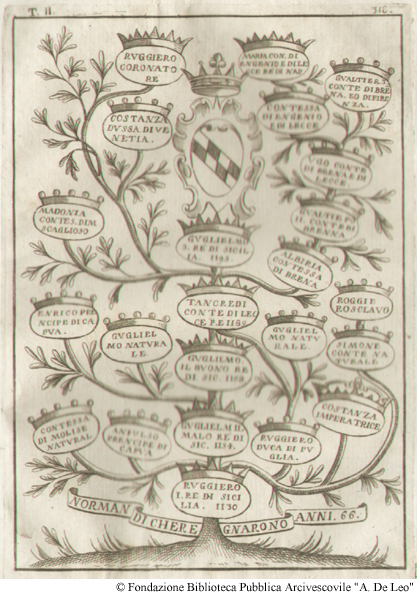 T. II.
316.
RUGGIERO
CORONATO
RE
MARIA CON. DI
EUGENIO E DI LEC
CE RE DI NAP.
GUALTIER
CONTE DI BRE
NA. EO DI FIRE
NZA.
COSTANZA
DVSSA. DI VE
NETIA.
CONTESSA
DI EUGENIO
E DI LECCE
UGO CONTE
DI BRENA E DI
LECCE.
MADONIA
CONTES. DI M
SCAGLIOSO
GUGLIELMO
3. RE DI SICIL
IA. 1195.
GUALTIERO
II. CONTE DI
BRENNA
ALBIRIA
CONTESSA
DI BRENA.
TANCREDI
CONTE DI LEC
CE RE 1189
ROGGIE
RO SCLAVO
ENRICO PRI
NCIPE DI CA
PUA.
GUGLIEL
MO NATURA
LE
GUGLIEL
MO NATV
RALE.
SIMONE
CONTE NA
TURALE
GUGLILMO
IL BUONO RE
DI SIC. 1166
CONTESSA
DI MOLISE
NATURAL
ANFULSO
PRENCIPE DI
CAPUA
GUGLIELM IL
MALO RE DI
SIC. 1154.
RUGGIERO
DUCA DI PU
GLIA.
COSTANZA
IMPERATRICE
RUGGIERO
I. RE DI SICI
LIA. 1130
NORMAN DI CHE REGNARONO ANNI. 66.
© Fondazione Biblioteca Pubblica Arcivescovile "A. De Leo"